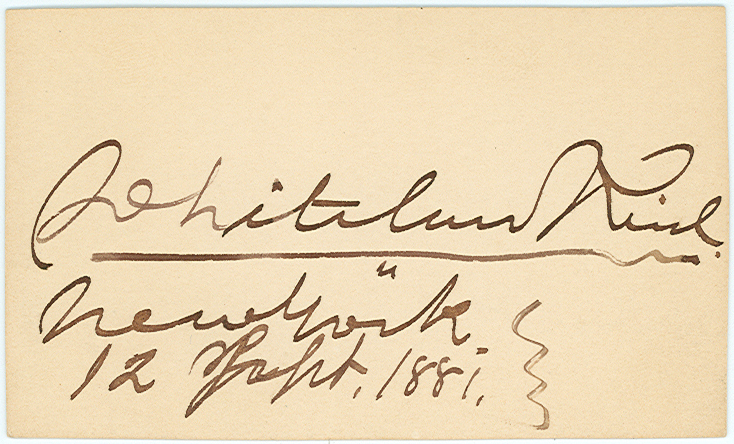 Whitelaw Reid.
New York
12 Sept. 1881.